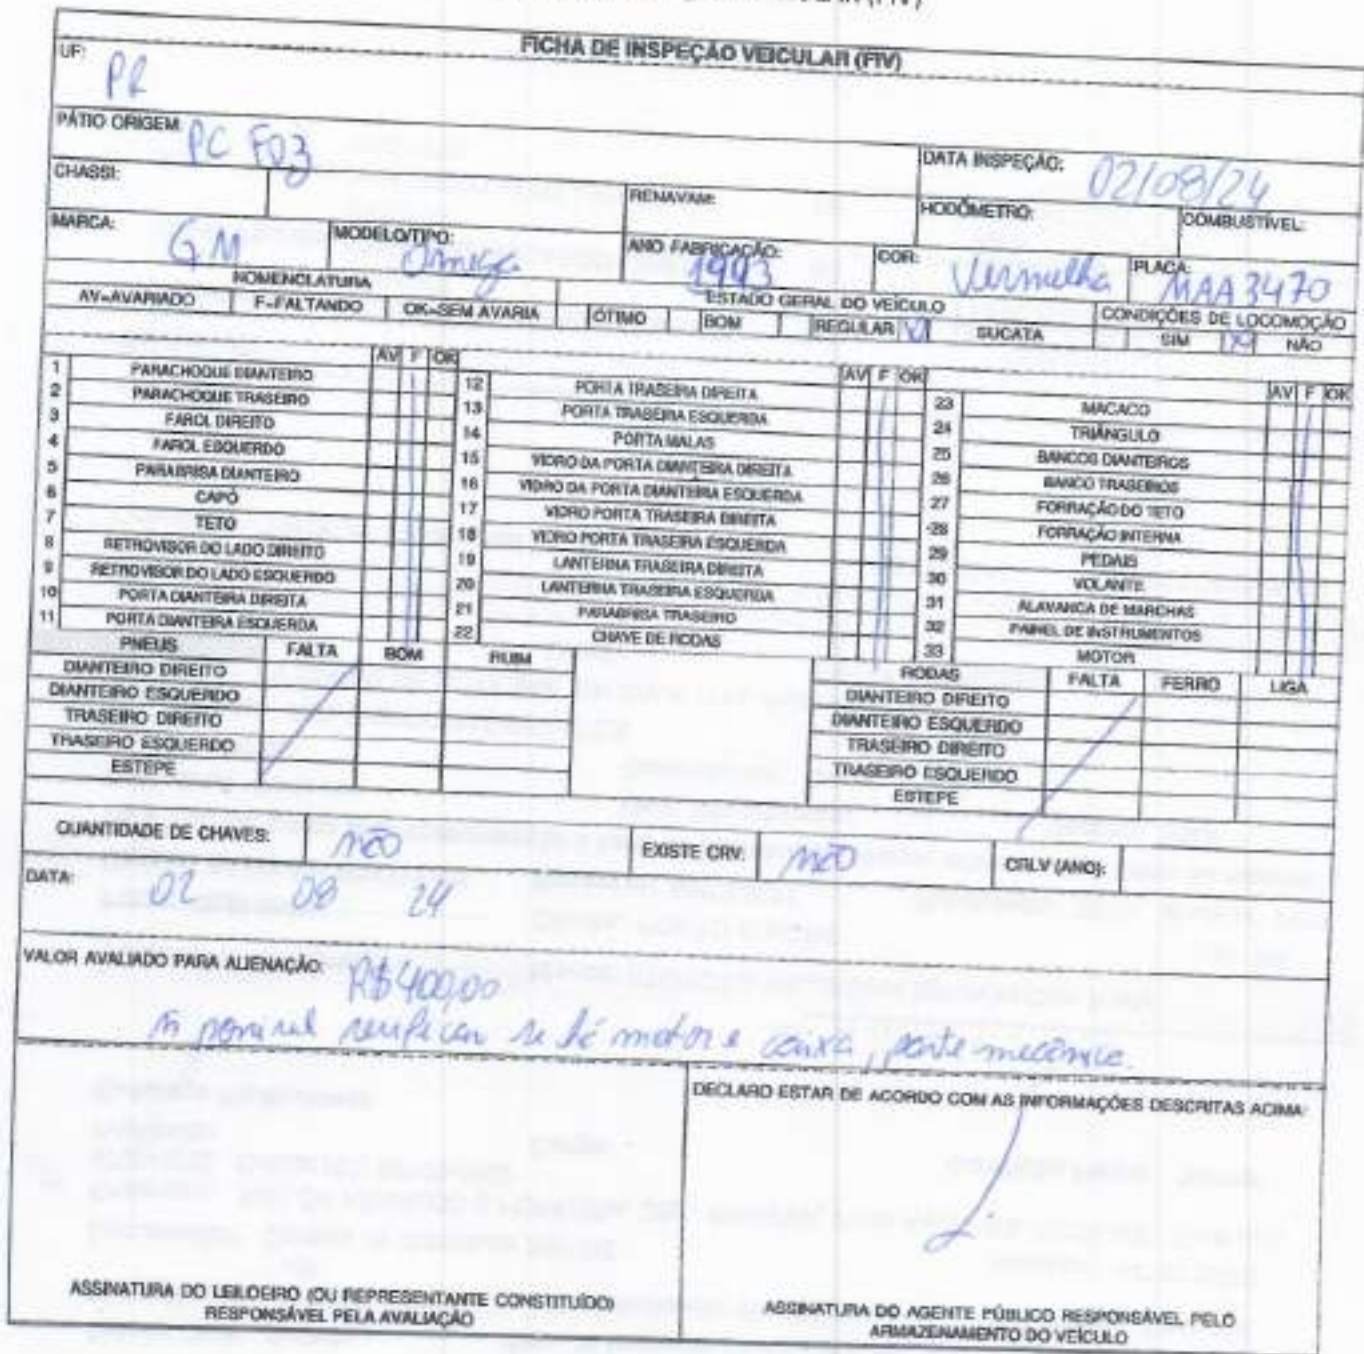 FICHA DE INSPEÇÃO VEICULAR (FIV)
UF: PR
PÁTIO ORIGEM: PC FOZ
DATA INSPEÇÃO: 02/08/24
CHASSI:
RENAVAM:
HODÔMETRO:
COMBUSTÍVEL:
MARCA: GM
MODELO/TIPO: Omega
ANO FABRICAÇÃO: 1993
COR: Vermelha
PLACA: MAA3470
NOMENCLATURA
ESTADO GERAL DO VEÍCULO
CONDIÇÕES DE LOCOMOÇÃO
AV=AVARIADO F=FALTANDO OK=SEM AVARIA
ÓTIMO BOM REGULAR SUCATA
SIM NÃO
AV F OK
1 PARACHOQUE DIANTEIRO
2 PARACHOQUE TRASEIRO
3 FAROL DIREITO
4 FAROL ESQUERDO
5 PARABRISA DIANTEIRO
6 CAPÔ
7 TETO
8 RETROVISOR DO LADO DIREITO
9 RETROVISOR DO LADO ESQUERDO
10 PORTA DIANTEIRA DIREITA
11 PORTA DIANTEIRA ESQUERDA
AV F OK
12 PORTA TRASEIRA DIREITA
13 PORTA TRASEIRA ESQUERDA
14 PORTA MALAS
15 VIDRO DA PORTA DIANTEIRA DIREITA
16 VIDRO DA PORTA DIANTEIRA ESQUERDA
17 VIDRO PORTA TRASEIRA DIREITA
18 VIDRO PORTA TRASEIRA ESQUERDA
19 LANTERNA TRASEIRA DIREITA
20 LANTERNA TRASEIRA ESQUERDA
21 PARABRISA TRASEIRO
22 CHAVE DE RODAS
AV F OK
23 MACACO
24 TRIÂNGULO
25 BANCOS DIANTEIROS
26 BANCO TRASEIROS
27 FORRAÇÃO DO TETO
28 FORRAÇÃO INTERNA
29 PEDAIS
30 VOLANTE
31 ALAVANCA DE MARCHAS
32 PAINEL DE INSTRUMENTOS
33 MOTOR
PNEUS FALTA BOM RUIM
DIANTEIRO DIREITO
DIANTEIRO ESQUERDO
TRASEIRO DIREITO
TRASEIRO ESQUERDO
ESTEPE
RODAS FALTA FERRO LIGA
DIANTEIRO DIREITO
DIANTEIRO ESQUERDO
TRASEIRO DIREITO
TRASEIRO ESQUERDO
ESTEPE
QUANTIDADE DE CHAVES: não
EXISTE CRV: não
CRLV (ANO):
DATA: 02 08 24
VALOR AVALIADO PARA ALIENAÇÃO: R$400,00
verificar se há motor e caixa, parte mecânica.
DECLARO ESTAR DE ACORDO COM AS INFORMAÇÕES DESCRITAS ACIMA:
ASSINATURA DO LEILOEIRO (OU REPRESENTANTE CONSTITUÍDO)
RESPONSÁVEL PELA AVALIAÇÃO
ASSINATURA DO AGENTE PÚBLICO RESPONSÁVEL PELO
ARMAZENAMENTO DO VEÍCULO